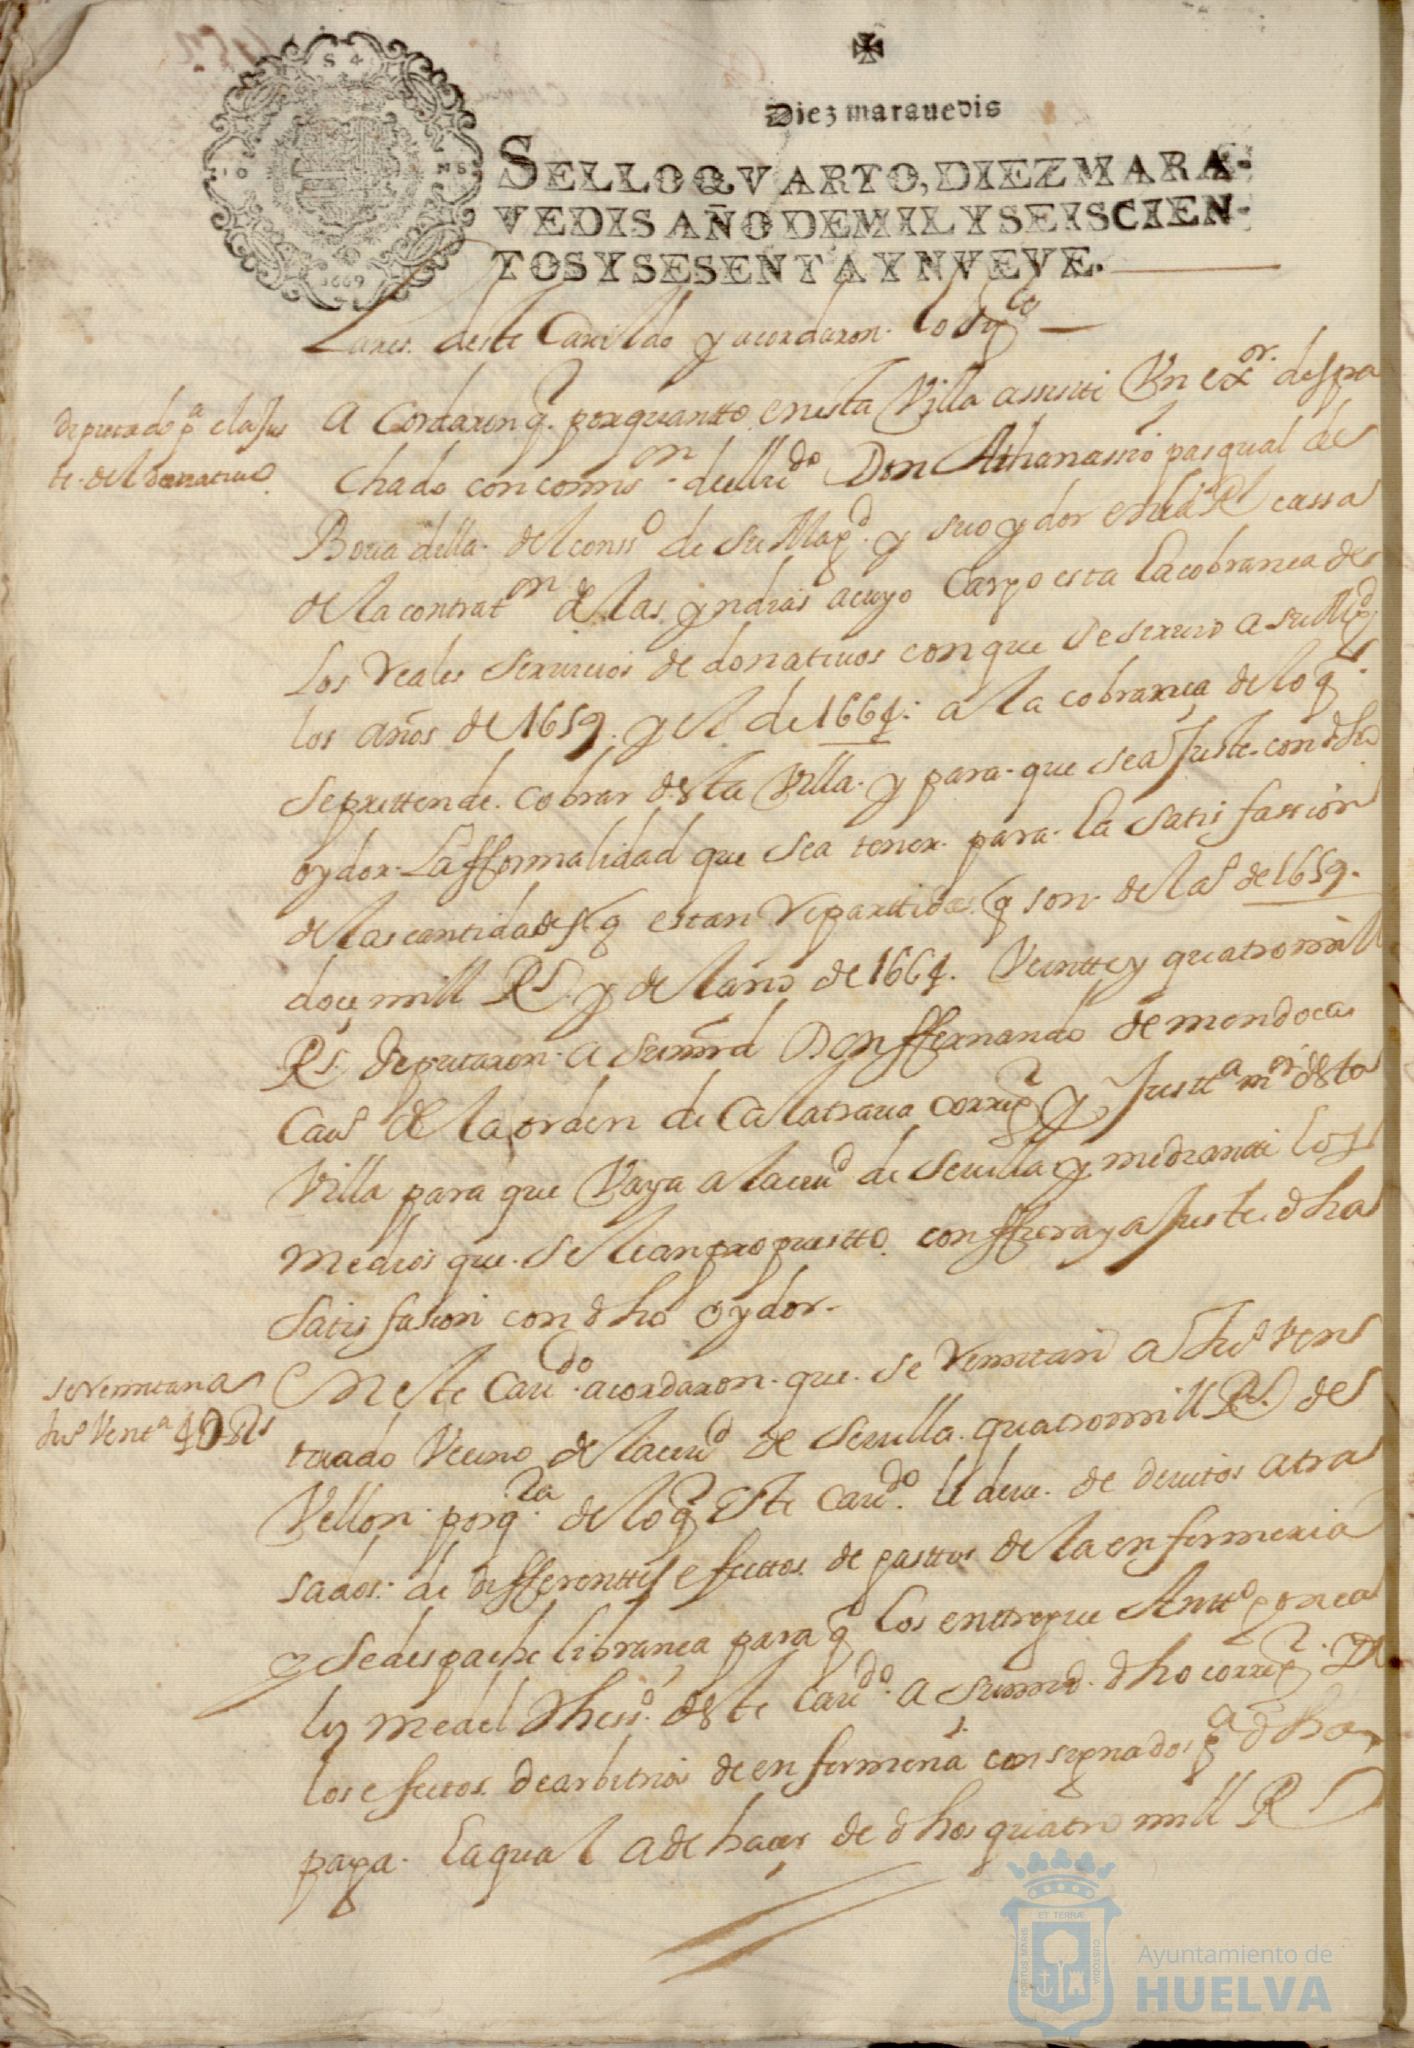 Diez marauedis
SELLO QVARTO, DIEZ MARA-
VEDIS AÑO DE MIL Y SEISCIEN-
TOS Y SESENTA Y NVEVE.
1669
Lares. deste Cauildo y acordaron. lo sigte
Deputado pa el ajus
te. del donatiuo
Acordaron q. porquantto enesta Villa assiste Vn exor. despa
chado con comisson del liçdo Don Athanassio pasqual de
Bouadilla. del consso de su Magd. y su oydor en la Rl cassa
de la contraton de las yndias a cuyo Cargo esta la cobranca de
los reales seruicios de donatiuos con que se siruio a su Magd
los años de 1659. y el de 1664: a la cobrança de lo q.
se prettende. cobrar desta Villa. y para. que se ajuste. con dho
oydor. la fformalidad que sea tener. para. la satisfassion
de las cantidades q estan repartidas. q son. de la de 1659.
doçe mill Rs. y del año de 1664. Veintte y quatro mill
Rs. deputaron. a su md Don ffernando de mendoca
Cauo de la orden de Calatraua corregr y Justta mor desta
Villa para que Vaya a la ciud de Seuilla y mediantte los
medios que. se le an propuestto. confiera y ajuste. dha
satisfasion con dho oydor.
se remitan a
Juo Venta 4D Rs
En este Caudo. acordaron. que. se remitan a Juo Ven
turado Vecino de la ciud de Seuilla. quatro mill Rs. de
Vellon. por qta de lo q Este caudo. le deue. de deuitos atra
sados: de differenttes efecttos. de gasttos de la enfermeria
y se despache librança para q los enttregue Antto ponca
ly medel thesso. deste Caudo. a su md. dho corregr. De
los efectos. de arbitrios de enfermeria consignados pa dha
paga. la qual a de hacer de dhos quatro mill Rs
PORTUS MARIS
ET TERRÆ
CUSTODIA
Ayuntamiento de
HUELVA